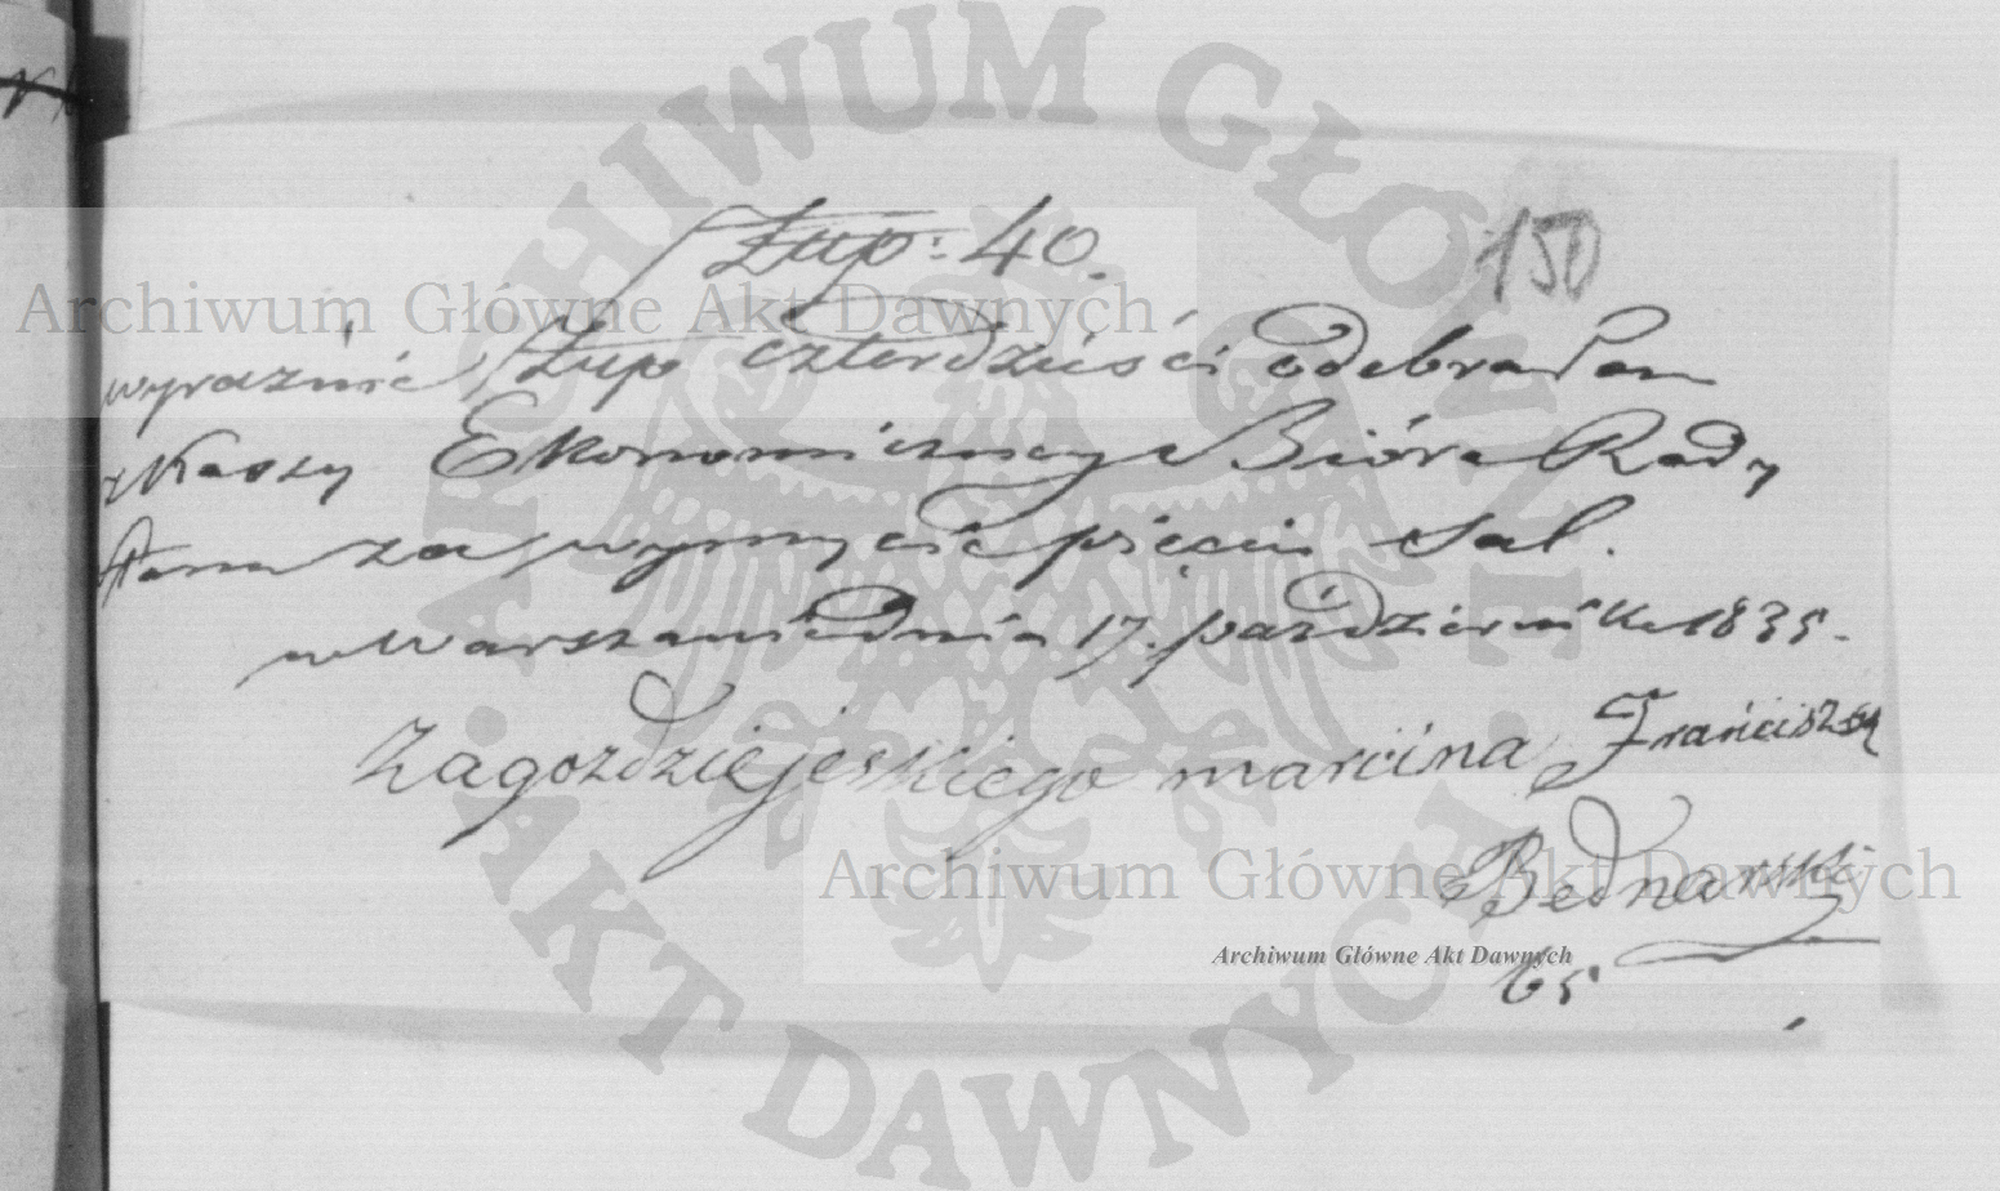 150
Złtp: 40.
wyraźnie Złtp czterdzieści odebrałem
z Kassy Ekonomiczney Bióra Rady
Stanu za wymycie pięciu Sal.
w Warszawie dnia 17. października 1835.
Zagozdziejeskiego marcina Franciszek
Bednarski
65
ARCHIWUM GŁÓWNE AKT DAWNYCH
Archiwum Główne Akt Dawnych
Archiwum Główne Akt Dawnych
Archiwum Główne Akt Dawnych